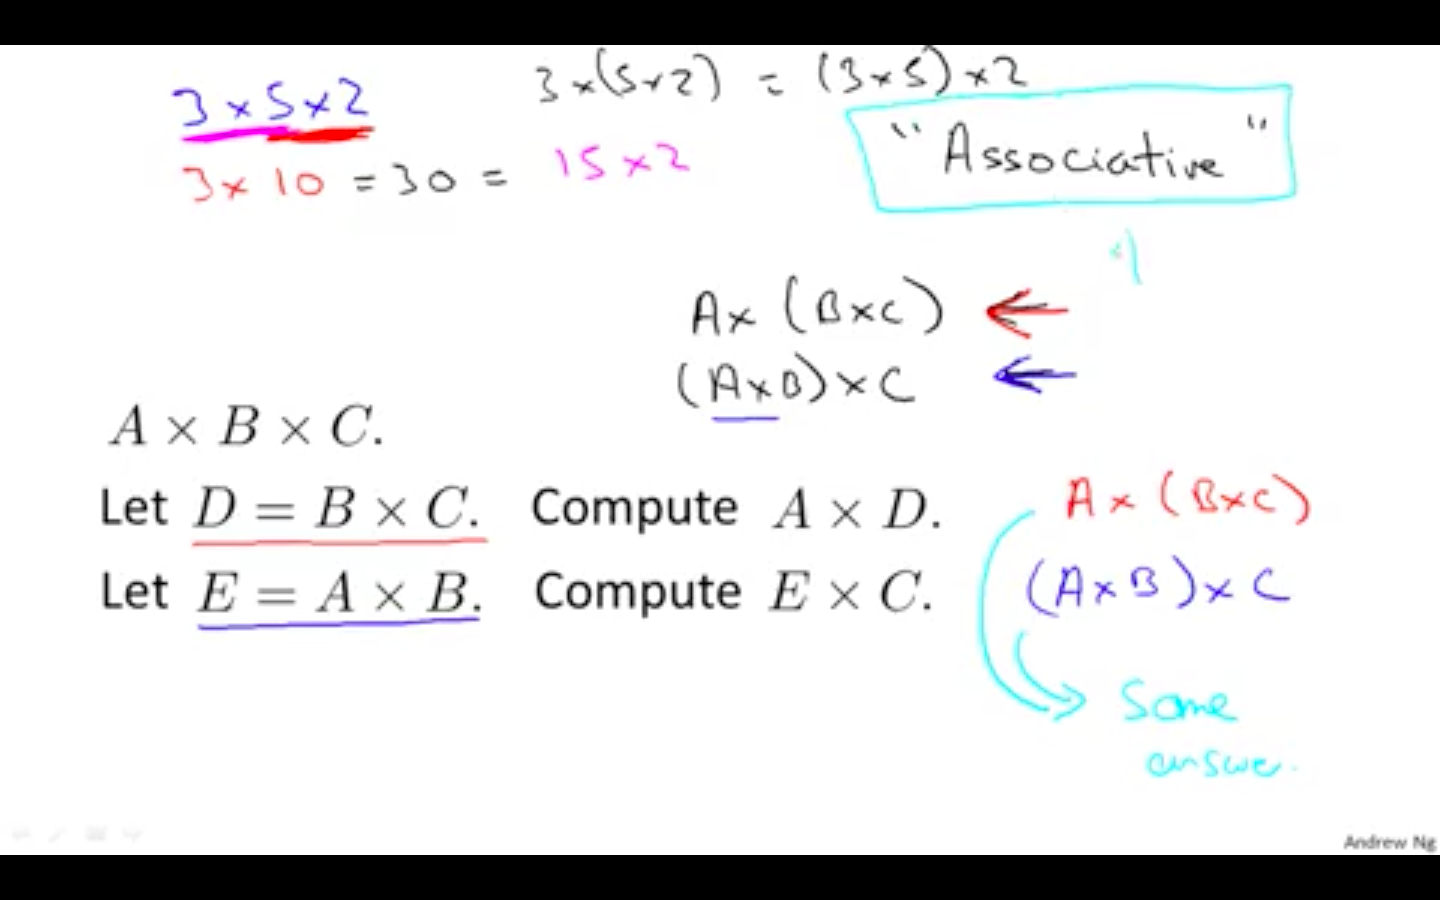 3 × 5 × 2
3 × (5 × 2) = (3 × 5) × 2
3 × 10 = 30 = 15 × 2
"Associative"
A × (B × C)
(A × B) × C
A × B × C.
Let D = B × C. Compute A × D. A × (B × C)
Let E = A × B. Compute E × C. (A × B) × C
Same
answer.
Andrew Ng